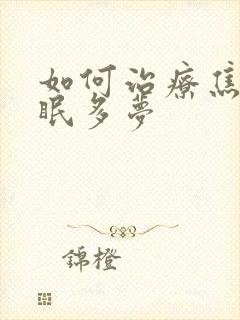 如何治療焦
眠多夢
錦橙